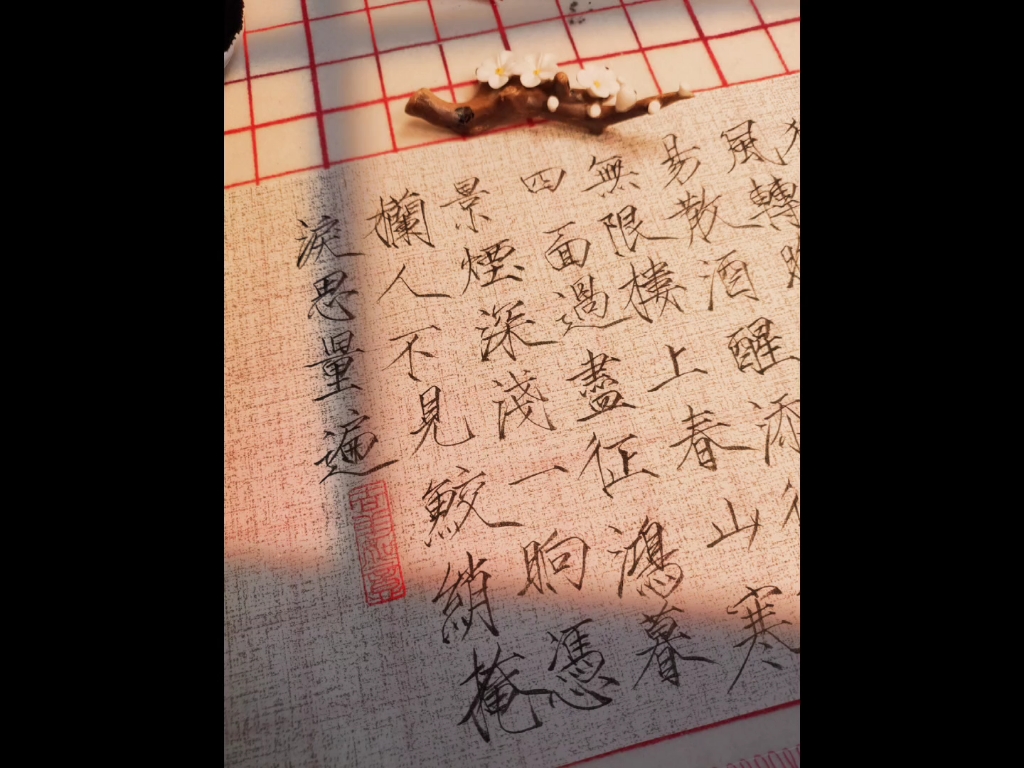 風轉
易散酒醒添
無限樓上春山寒
四面過盡征鴻暮
景煙深淺一晌憑
欄人不見鮫綃掩
淚思量遍